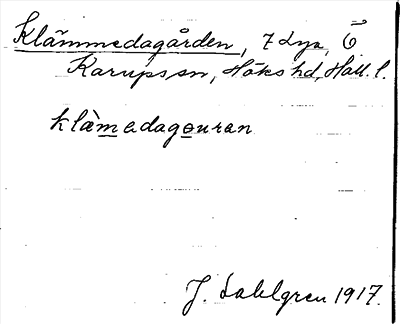 Klämmedagården, 7 Lya, Ö
Karups sn, Höks hd, Hall. l.
klämedagouran
J. Dahlgren 1917.